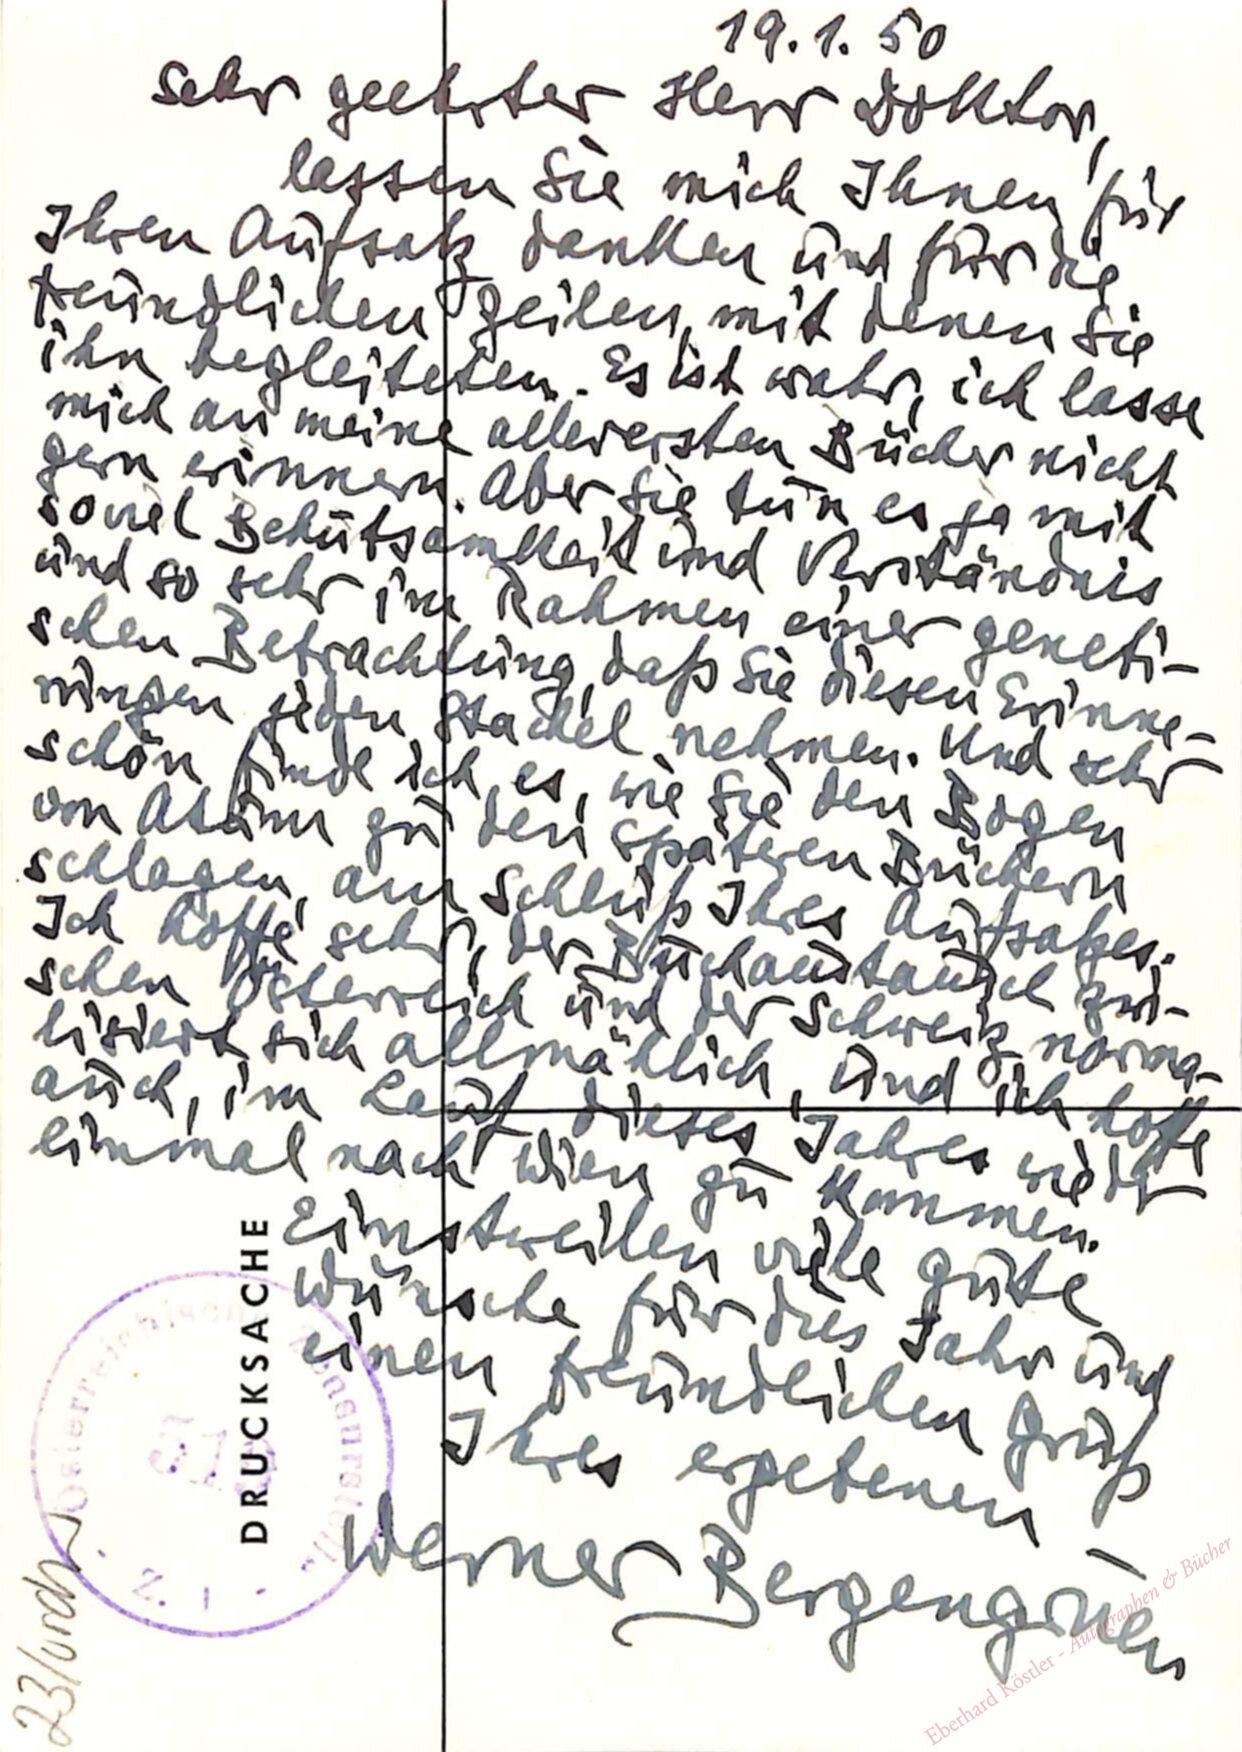 19.1.50
Sehr geehrter Herr Doktor,
lassen Sie mich Ihnen für
Ihren Aufsatz danken und für die
freundlichen Zeilen, mit denen Sie
ihn begleiteten. Es ist wahr, ich lasse
mich an meine allerersten Bücher nicht
gern erinnern. Aber Sie tun es ja mit
soviel Behutsamkeit und Verständnis
und so sehr im Rahmen einer geneti-
schen Betrachtung, daß Sie diesen Erinne-
rungen jeden Stachel nehmen. Und sehr
schön finde ich es, wie Sie den Bogen
von Atüm zu den späteren Büchern
schlagen, am Schluß Ihres Aufsatzes.
Ich hoffe sehr, der Buchaustausch zwi-
schen Österreich und der Schweiz norma-
lisiert sich allmählich, und ich hoffe
auch, im Lauf dieses Jahres wieder
einmal nach Wien zu kommen.
Einstweilen viele gute
Wünsche für dies Jahr und
einen freundlichen Gruß
Ihres ergebenen
Werner Bergengruen
DRUCKSACHE
Österreichische Zensurstelle
Eberhard Köstler - Autographen & Bücher